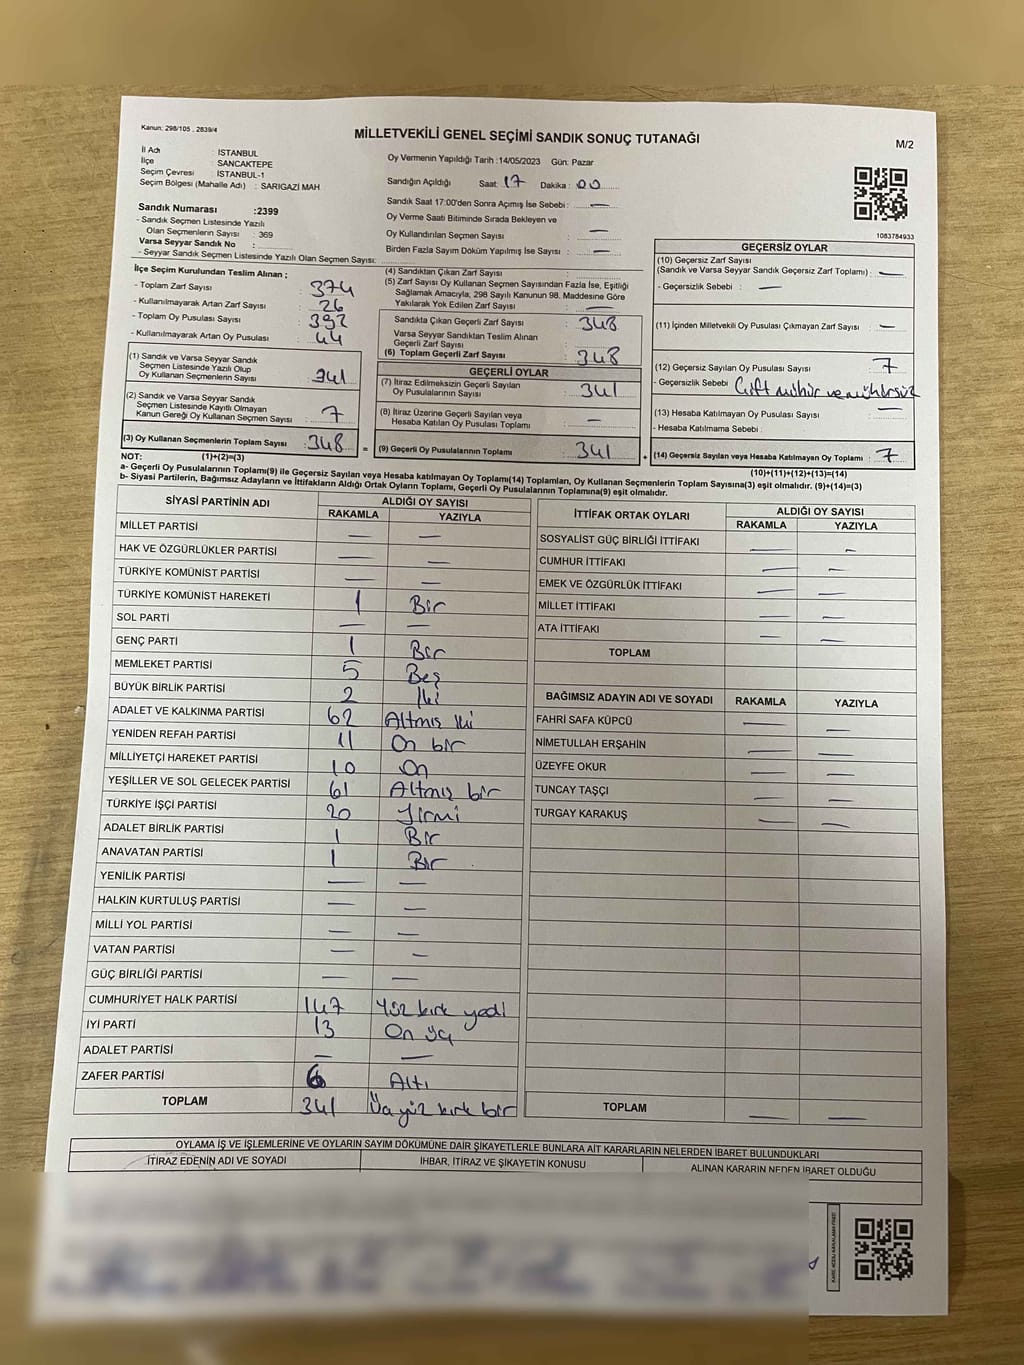 Kanun: 298/105 , 2839/4
MİLLETVEKİLİ GENEL SEÇİMİ SANDIK SONUÇ TUTANAĞI
M/2
İl Adı : İSTANBUL
İlçe : SANCAKTEPE
Seçim Çevresi : İSTANBUL-1
Seçim Bölgesi (Mahalle Adı) : SARIGAZİ MAH
Oy Vermenin Yapıldığı Tarih :14/05/2023 Gün: Pazar
Sandığın Açıldığı Saat: 17 Dakika : 00
Sandık Saat 17:00'den Sonra Açmış İse Sebebi : —
Oy Verme Saati Bitiminde Sırada Bekleyen ve
Oy Kullandırılan Seçmen Sayısı : —
Birden Fazla Sayım Döküm Yapılmış İse Sayısı : —
1083784933
Sandık Numarası :2399
- Sandık Seçmen Listesinde Yazılı
Olan Seçmenlerin Sayısı : 369
Varsa Seyyar Sandık No :
- Seyyar Sandık Seçmen Listesinde Yazılı Olan Seçmen Sayısı:
İlçe Seçim Kurulundan Teslim Alınan ;
- Toplam Zarf Sayısı : 374
- Kullanılmayarak Artan Zarf Sayısı : 26
- Toplam Oy Pusulası Sayısı : 392
- Kullanılmayarak Artan Oy Pusulası : 44
(1) Sandık ve Varsa Seyyar Sandık
Seçmen Listesinde Yazılı Olup
Oy Kullanan Seçmenlerin Sayısı : 341
(2) Sandık ve Varsa Seyyar Sandık
Seçmen Listesinde Kayıtlı Olmayan
Kanun Gereği Oy Kullanan Seçmen Sayısı : 7
(3) Oy Kullanan Seçmenlerin Toplam Sayısı : 348
(4) Sandıktan Çıkan Zarf Sayısı :
(5) Zarf Sayısı Oy Kullanan Seçmen Sayısından Fazla İse, Eşitliği
Sağlamak Amacıyla, 298 Sayılı Kanunun 98. Maddesine Göre
Yakılarak Yok Edilen Zarf Sayısı : —
Sandıkta Çıkan Geçerli Zarf Sayısı : 348
Varsa Seyyar Sandıktan Teslim Alınan
Geçerli Zarf Sayısı :
(6) Toplam Geçerli Zarf Sayısı : 348
GEÇERLİ OYLAR
(7) İtiraz Edilmeksizin Geçerli Sayılan
Oy Pusulalarının Sayısı : 341
(8) İtiraz Üzerine Geçerli Sayılan veya
Hesaba Katılan Oy Pusulası Toplamı : —
= (9) Geçerli Oy Pusulalarının Toplamı : 341
GEÇERSİZ OYLAR
(10) Geçersiz Zarf Sayısı
(Sandık ve Varsa Seyyar Sandık Geçersiz Zarf Toplamı) : —
- Geçersizlik Sebebi : —
(11) İçinden Milletvekili Oy Pusulası Çıkmayan Zarf Sayısı : —
(12) Geçersiz Sayılan Oy Pusulası Sayısı : 7
- Geçersizlik Sebebi : Çift mühür ve mühürsüz
(13) Hesaba Katılmayan Oy Pusulası Sayısı : —
- Hesaba Katılmama Sebebi :
+ (14) Geçersiz Sayılan veya Hesaba Katılmayan Oy Toplamı : 7
NOT: (1)+(2)=(3)
(10)+(11)+(12)+(13)=(14)
a- Geçerli Oy Pusulalarının Toplamı(9) ile Geçersiz Sayılan veya Hesaba katılmayan Oy Toplamı(14) Toplamları, Oy Kullanan Seçmenlerin Toplam Sayısına(3) eşit olmalıdır. (9)+(14)=(3)
b- Siyasi Partilerin, Bağımsız Adayların ve İttifakların Aldığı Ortak Oyların Toplamı, Geçerli Oy Pusulalarının Toplamına(9) eşit olmalıdır.
SİYASİ PARTİNİN ADI ALDIĞI OY SAYISI
RAKAMLA YAZIYLA
MİLLET PARTİSİ — —
HAK VE ÖZGÜRLÜKLER PARTİSİ — —
TÜRKİYE KOMÜNİST PARTİSİ — —
TÜRKİYE KOMÜNİST HAREKETİ 1 Bir
SOL PARTİ — —
GENÇ PARTİ 1 Bir
MEMLEKET PARTİSİ 5 Beş
BÜYÜK BİRLİK PARTİSİ 2 İki
ADALET VE KALKINMA PARTİSİ 62 Altmış iki
YENİDEN REFAH PARTİSİ 11 On bir
MİLLİYETÇİ HAREKET PARTİSİ 10 On
YEŞİLLER VE SOL GELECEK PARTİSİ 61 Altmış bir
TÜRKİYE İŞÇİ PARTİSİ 20 Yirmi
ADALET BİRLİK PARTİSİ 1 Bir
ANAVATAN PARTİSİ 1 Bir
YENİLİK PARTİSİ — —
HALKIN KURTULUŞ PARTİSİ — —
MİLLİ YOL PARTİSİ — —
VATAN PARTİSİ — —
GÜÇ BİRLİĞİ PARTİSİ — —
CUMHURİYET HALK PARTİSİ 147 Yüz kırk yedi
İYİ PARTİ 13 On üç
ADALET PARTİSİ — —
ZAFER PARTİSİ 6 Altı
TOPLAM 341 Üçyüz kırk bir
İTTİFAK ORTAK OYLARI ALDIĞI OY SAYISI
RAKAMLA YAZIYLA
SOSYALİST GÜÇ BİRLİĞİ İTTİFAKI — —
CUMHUR İTTİFAKI — —
EMEK VE ÖZGÜRLÜK İTTİFAKI — —
MİLLET İTTİFAKI — —
ATA İTTİFAKI — —
TOPLAM
BAĞIMSIZ ADAYIN ADI VE SOYADI RAKAMLA YAZIYLA
FAHRİ SAFA KÜPCÜ — —
NİMETULLAH ERŞAHİN — —
ÜZEYFE OKUR — —
TUNCAY TAŞÇI — —
TURGAY KARAKUŞ — —
TOPLAM — —
OYLAMA İŞ VE İŞLEMLERİNE VE OYLARIN SAYIM DÖKÜMÜNE DAİR ŞİKAYETLERLE BUNLARA AİT KARARLARIN NELERDEN İBARET BULUNDUKLARI
İTİRAZ EDENİN ADI VE SOYADI İHBAR, İTİRAZ VE ŞİKAYETİN KONUSU ALINAN KARARIN NEDEN İBARET OLDUĞU